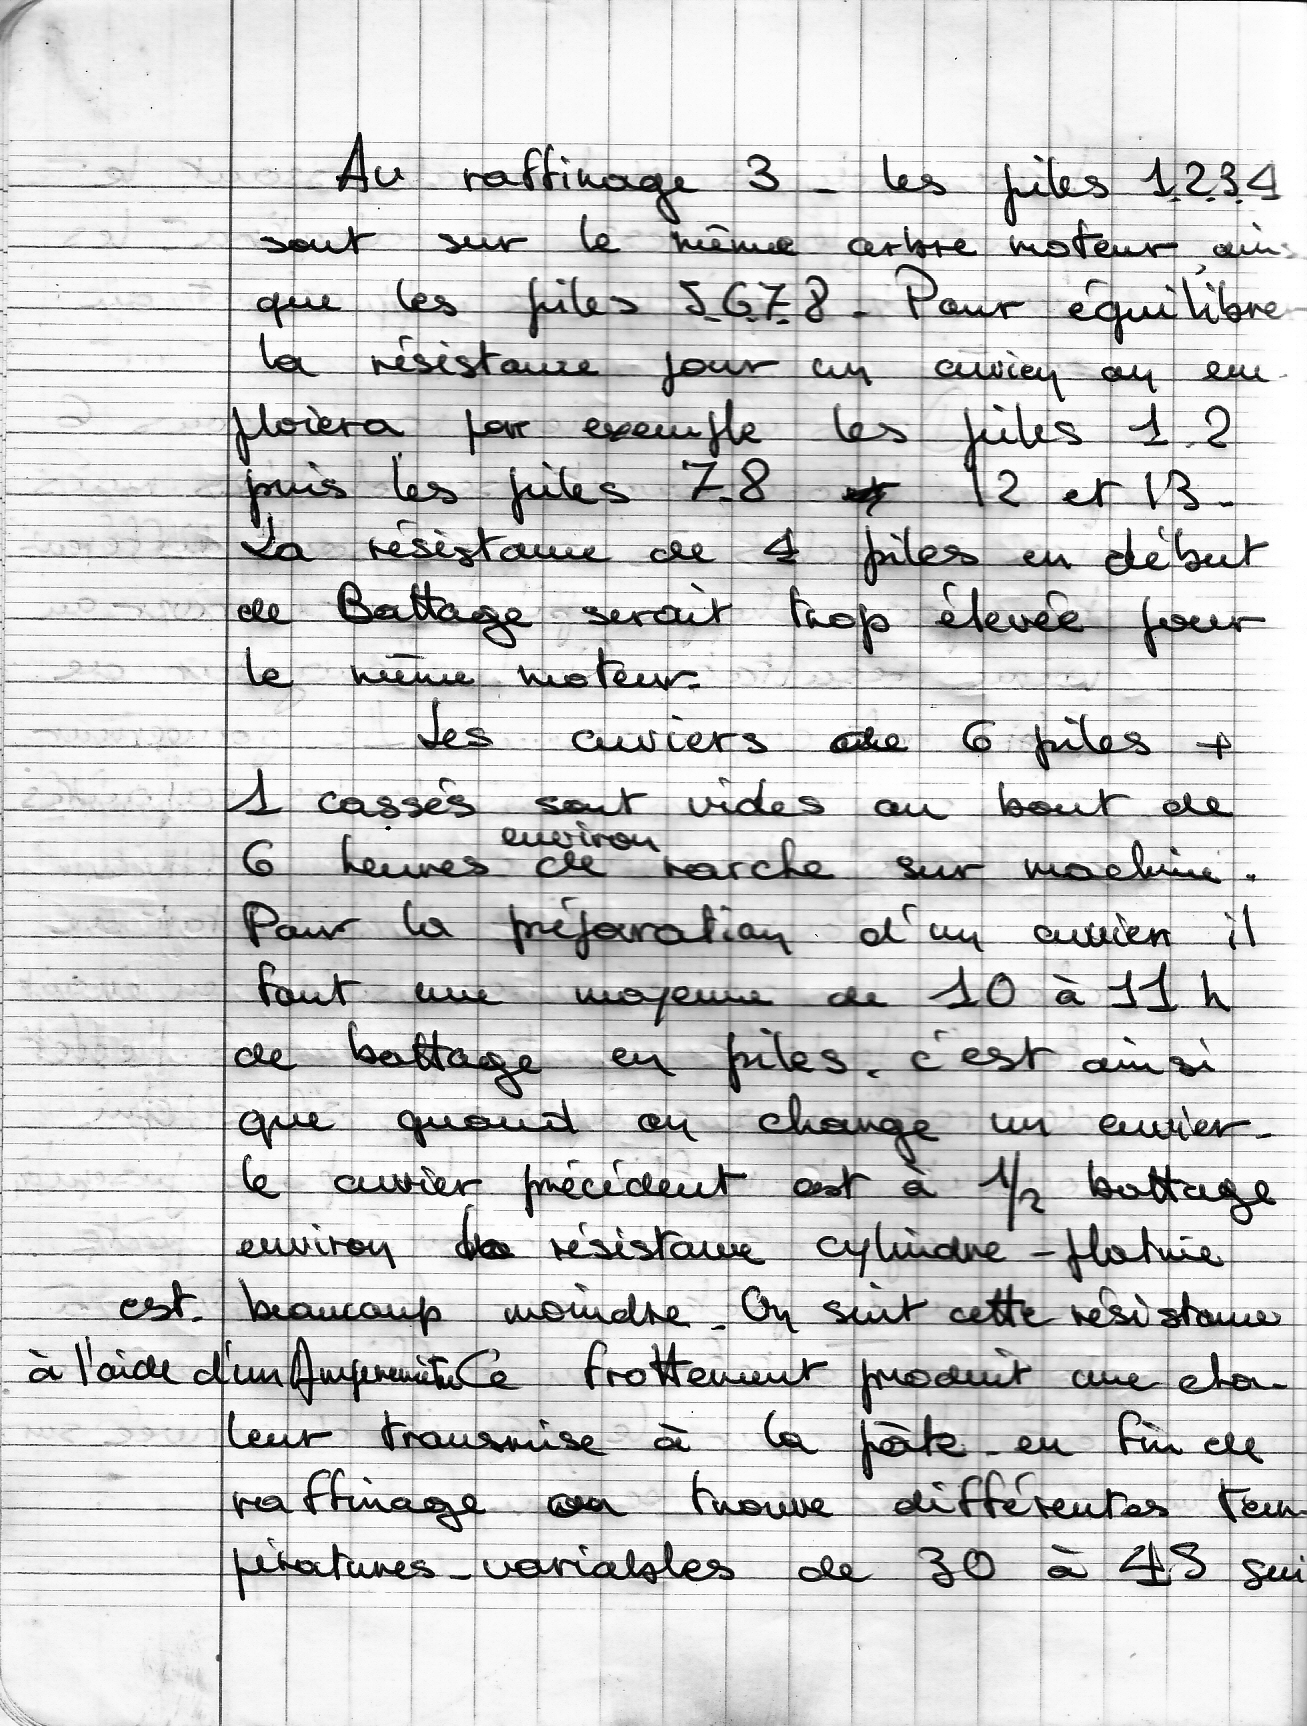 Au raffinage 3 - les piles 1.2.3.4
sont sur le même arbre moteur, ains
que les piles 5.6.7.8. Pour équilibre
la résistance pour un cuvier on em
ploiera par exemple les piles 1.2
puis les piles 7.8 et 12 et 13.
La résistance de 4 piles en début
de Battage serait trop élevée pour
le même moteur.
Les cuviers de 6 piles +
1 cassés sont vides au bout de
environ
6 heures de marche sur machine.
Pour la préparation d'un cuvier il
faut une moyenne de 10 à 11 h
de battage en piles. c'est ainsi
que quand on change un cuvier-
le cuvier précédent est à 1/2 battage
environ la résistance cylindre - platine
est. beaucoup moindre. On suit cette résistance
à l'aide d'un Ampèremètre Ce frottement produit une cha-
leur transmise à la pâte - en fin de
raffinage on trouve différentes tem
pératures - variables de 30 à 45 sui